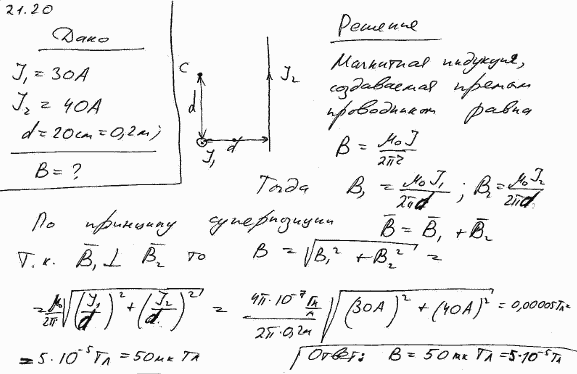 21.20
Дано
J₁ = 30A
J₂ = 40A
d = 20см = 0,2м;
B = ?
C
d
J₁
d
J₂
Решение
Магнитная индукция,
создаваемая прямым
проводником равна
B = μ₀J / 2πr
Тогда B₁ = μ₀J₁ / 2πd ; B₂ = μ₀J₂ / 2πd
По принципу суперпозиции B̄ = B̄₁ + B̄₂
Т.к. B̄₁ ⊥ B̄₂ то B = √(B₁² + B₂²) =
= μ₀/2π √((J₁/d)² + (J₂/d)²) = (4π·10⁻⁷ Гн/м) / (2π·0,2м) √((30A)² + (40A)²) = 0,00005Тл =
= 5·10⁻⁵Тл = 50мкТл
Ответ: B = 50мкТл = 5·10⁻⁵Тл